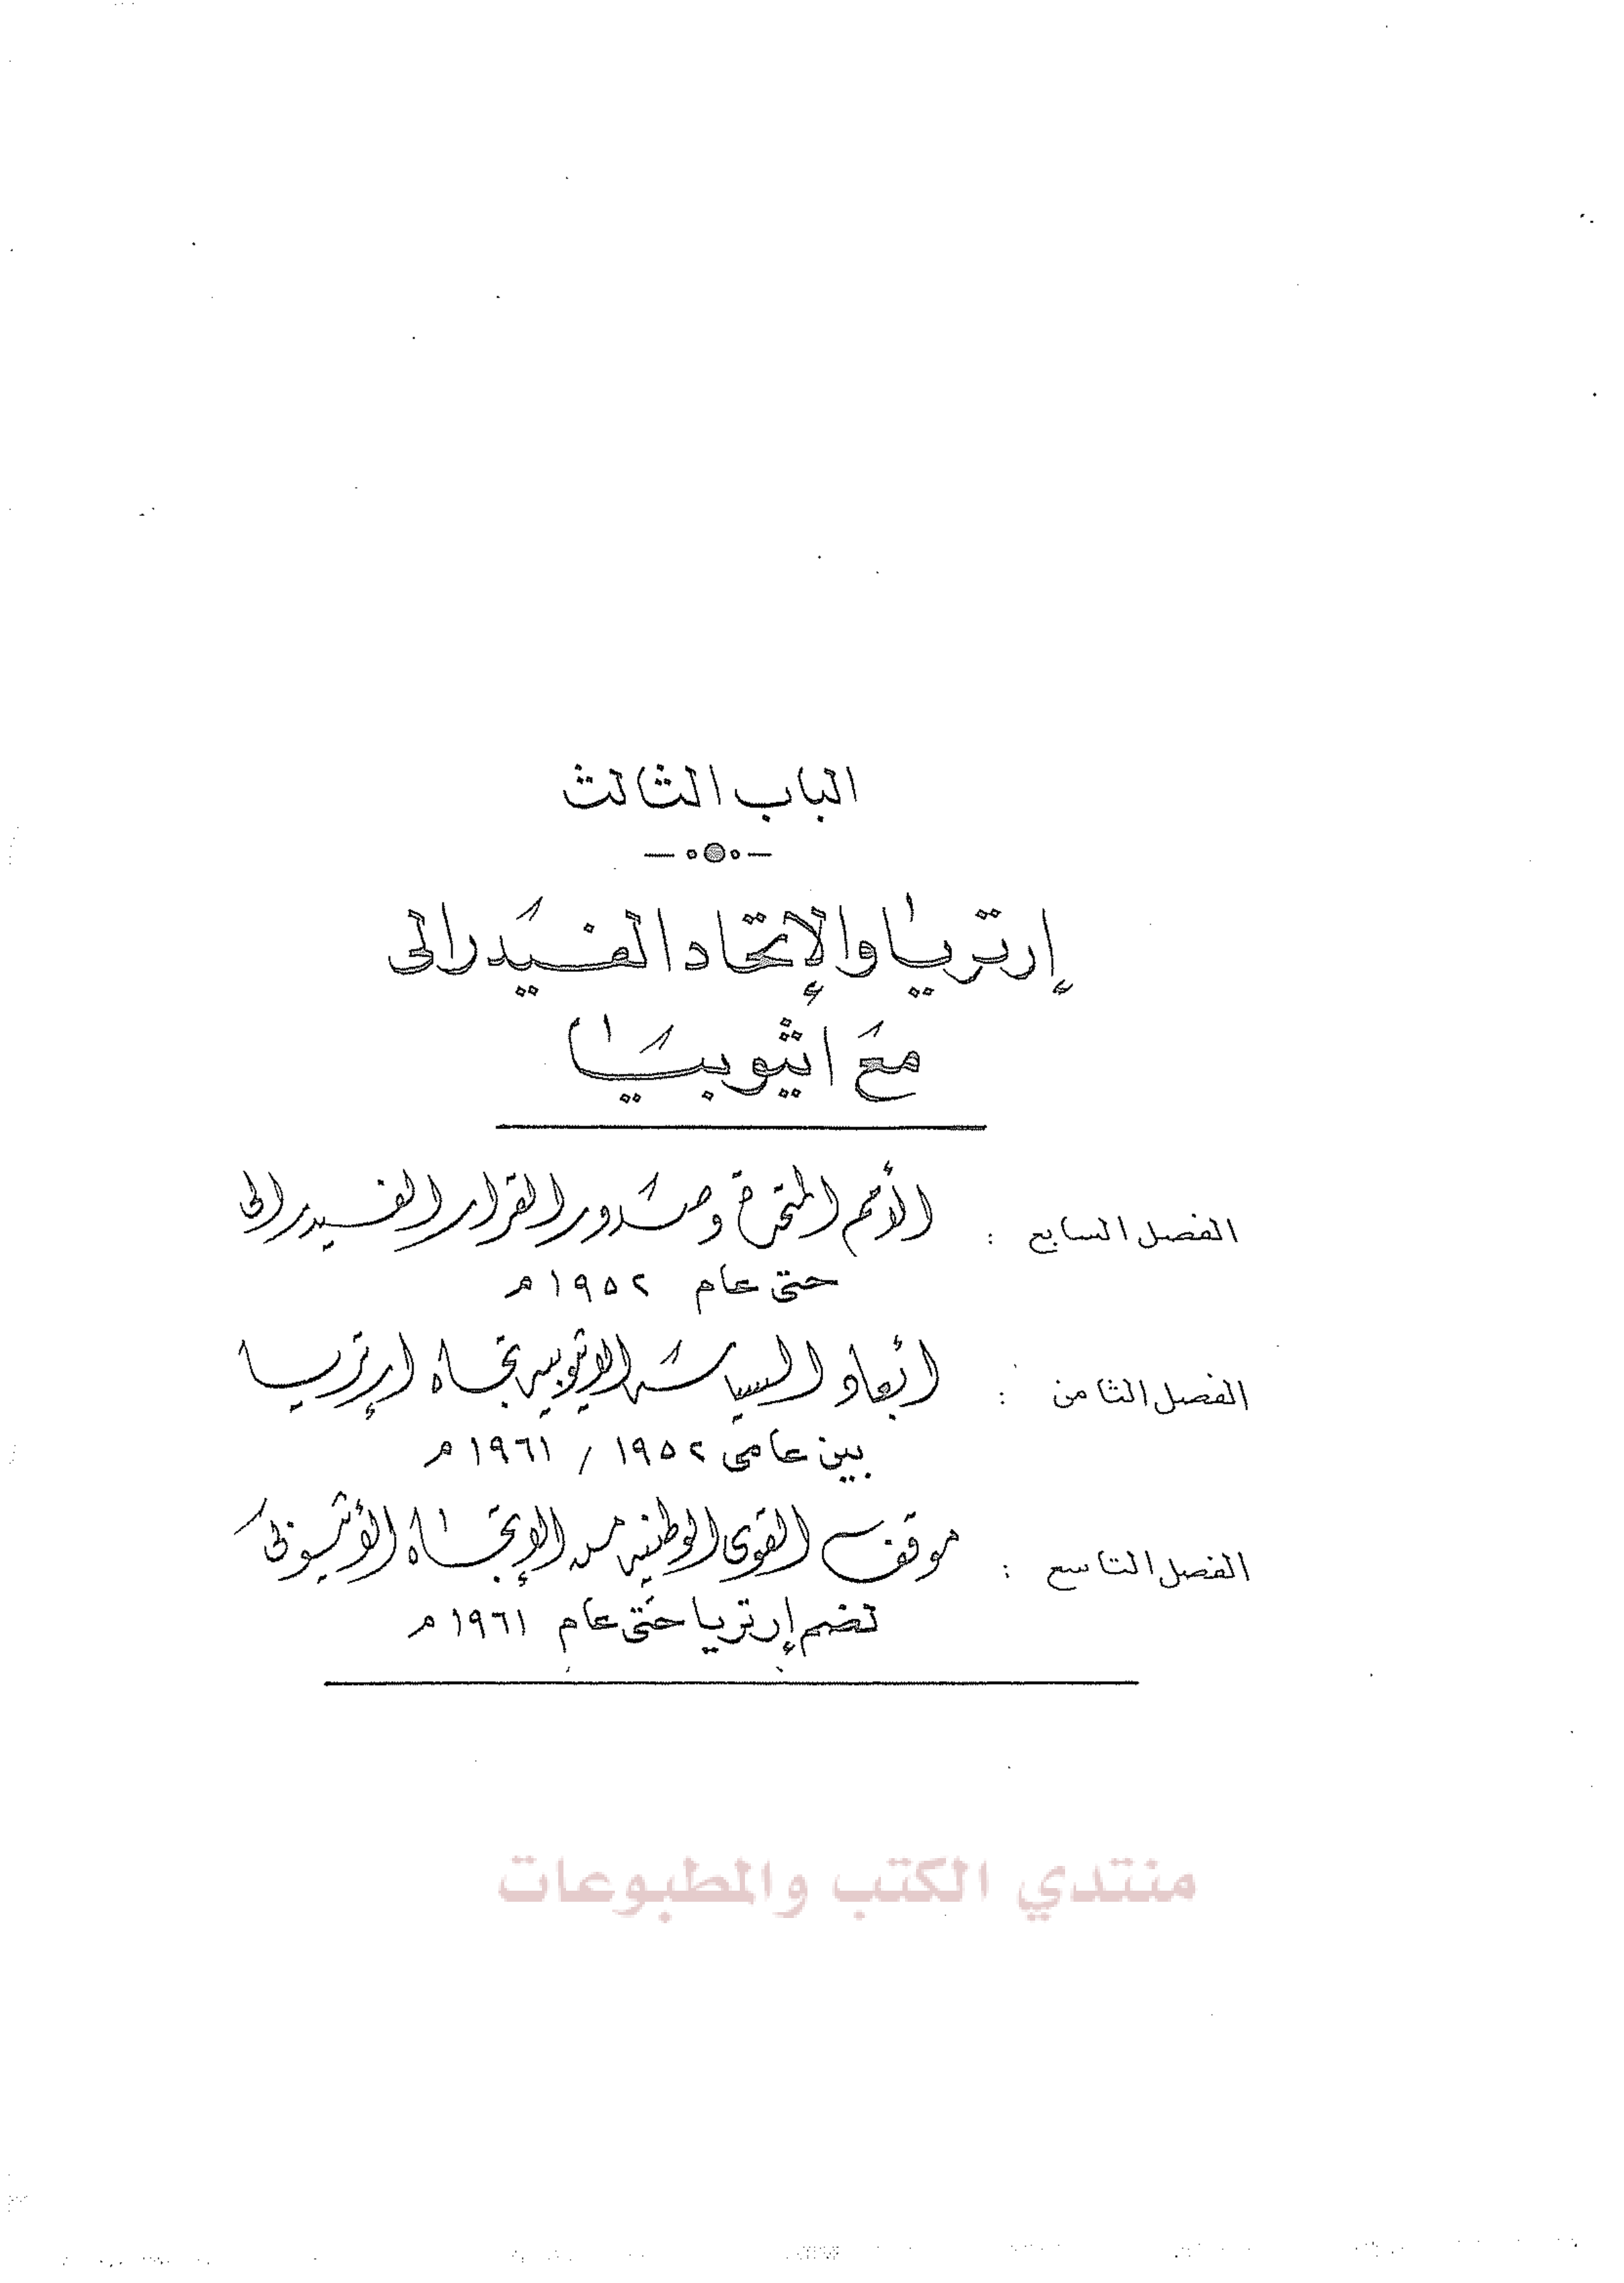 الباب الثالث
إرتريا والإتحاد الفيدرالى
مع اثيوبيا
الفصل السابع : الأمم المتحدة وصدور القرار الفيدرالى
حتى عام ١٩٥٢م
الفصل الثامن : أبعاد السياسة الإثيوبية تجاه إرتريا
بين عامى ١٩٥٢ / ١٩٦١م
الفصل التاسع : موقف القوى الوطنية من الإتجاه الأثيوبى
لضم إرتريا حتى عام ١٩٦١م
منتدي الكتب والمطبوعات